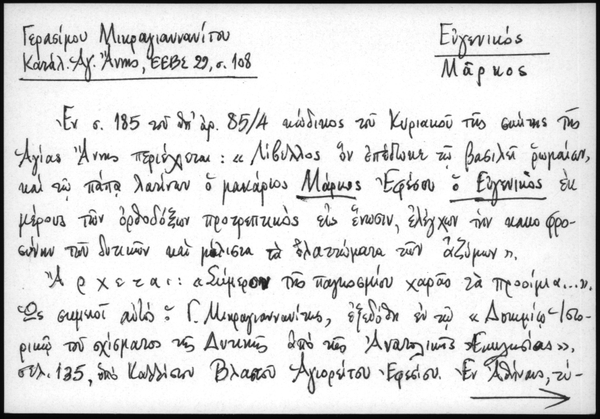 Γερασίμου Μικραγιαννανίτου
Κατάλ. Ἁγ. Ἄννης, ΕΕΒΣ 29, σ. 108
Εὐγενικός
Μᾶρκος
Ἐν σ. 185 τοῦ ὑπ' ἀρ. 85/4 κώδικος τοῦ Κυριακοῦ τῆς σκήτης τῆς
Ἁγίας Ἄννης περιέχεται: «Λίβελλος ὃν ἐπέδωκε τῷ βασιλεῖ ῥωμαίων,
καὶ τῷ πάπᾳ λατίνων ὁ μακάριος Μάρκος Ἐφέσου ὁ Εὐγενικὸς ἐκ
μέρους τῶν ὀρθοδόξων προτρεπτικὸς εἰς ἕνωσιν, ἐλέγχων τὴν κακοφρο-
σύνην τοῦ δυτικῶν καὶ μάλιστα τὰ ἐλαττώματα τῶν ἀζύμων».
Ἄρχεται: «Σήμερον τῆς παγκοσμίου χαρᾶς τὰ προοίμια...».
Ὡς σημειοῖ αὐτὸ ὁ Γ. Μικραγιαννανίτης, ἐξεδόθη ἐν τῷ «Δοκιμίῳ Ἱστο-
ρικῷ τοῦ σχίσματος τῆς Δυτικῆς ἀπὸ τῆς Ἀνατολικῆς Ἐκκλησίας»,
σελ. 135, ὑπὸ Καλλίστου Βλαστοῦ Ἁγιορείτου Ἐφεσίου. Ἐν Ἀθήναις, τύ-